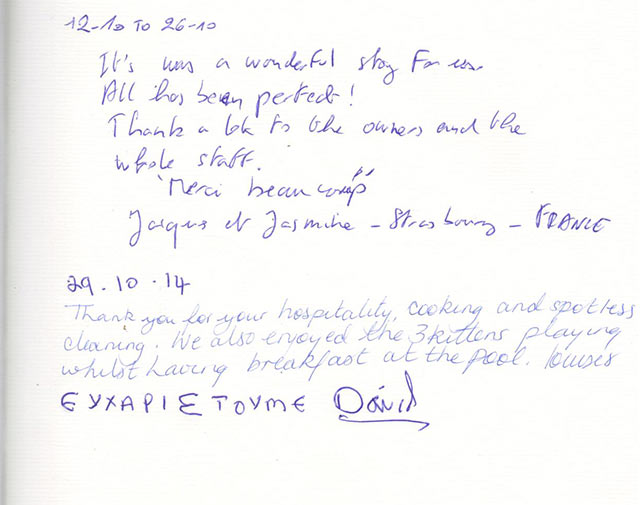 12-10 TO 26-10
It's was a wonderful stay for us
All has been perfect!
Thank a lot to the owners and the
whole staff.
"Merci beaucoup"
Jacques et Jasmine - Strasbourg - FRANCE
29.10.14
Thank you for your hospitality, cooking and spotless
cleaning. We also enjoyed the 3 kittens playing
whilst having breakfast at the pool.
ΕΥΧΑΡΙΣΤΟΥΜΕ David